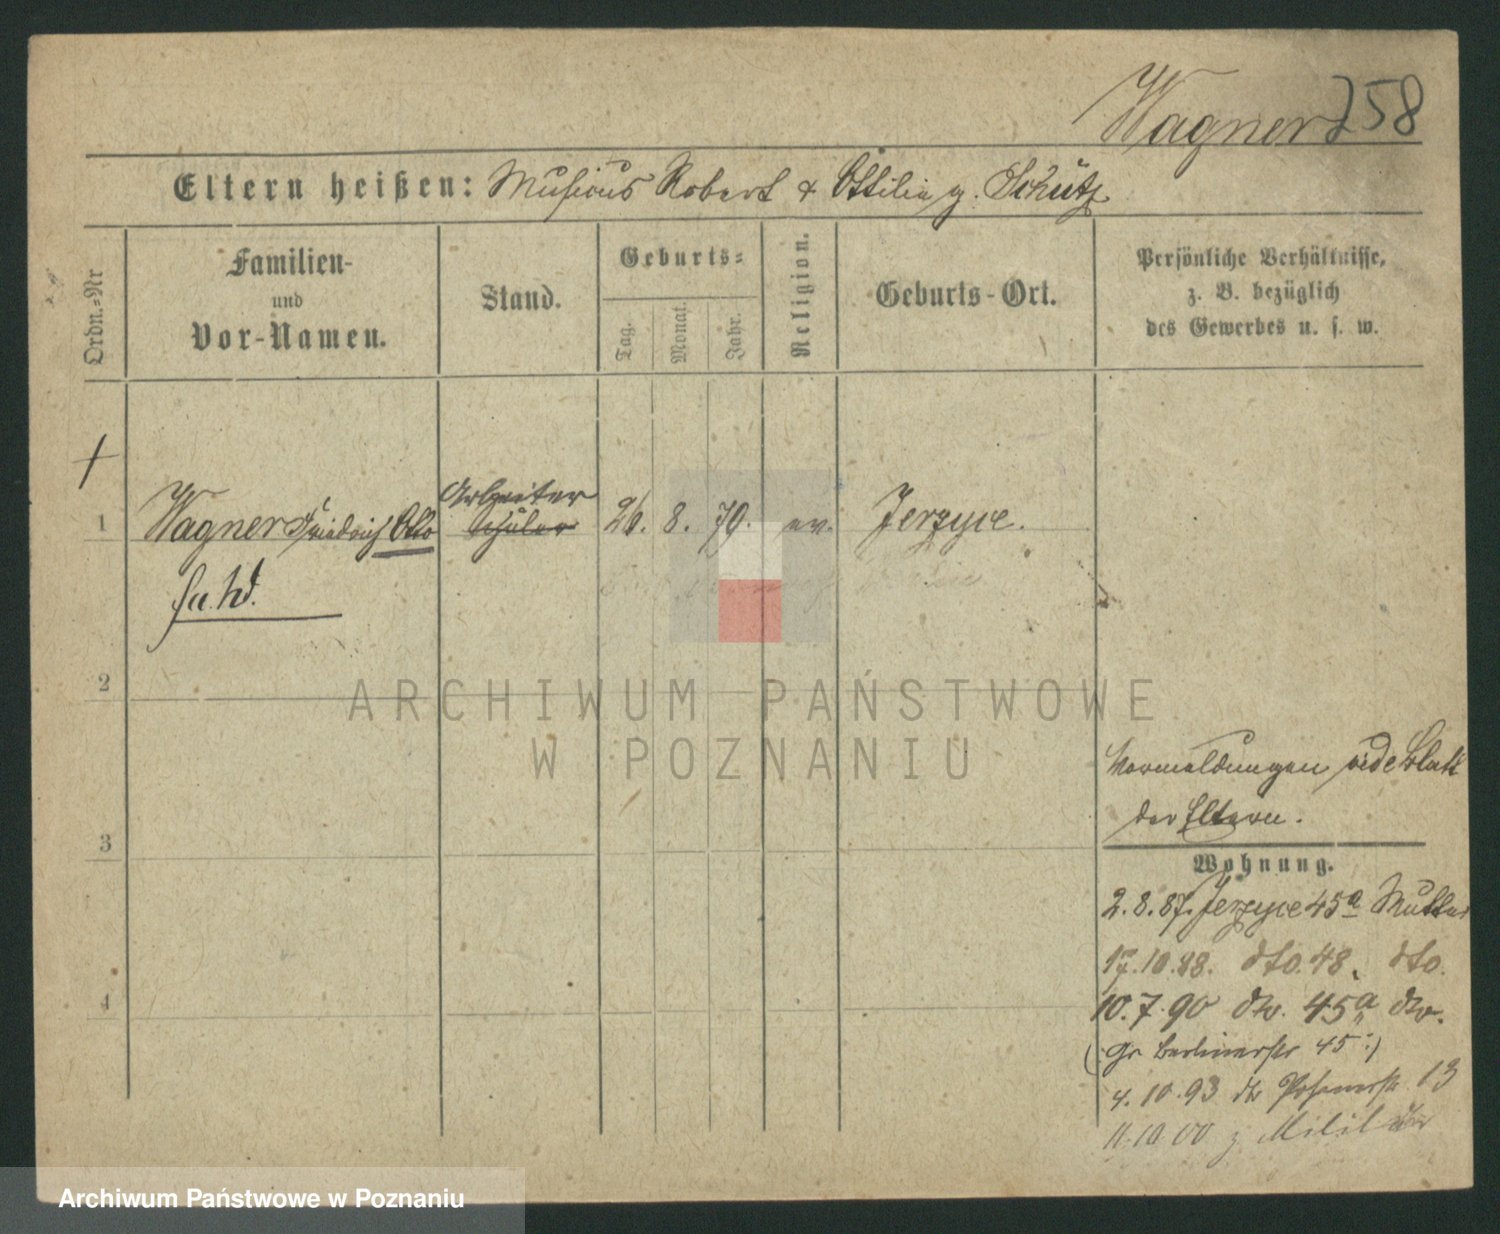 Wagner 258
Eltern heißen: Musicus Robert & Ottilie g. Schütz
Ordn.=Nr
Familien-
und
Vor-Namen.
Stand.
Geburts=
Tag.
Monat.
Jahr.
Religion.
Geburts-Ort.
Persönliche Verhältnisse,
z. B. bezüglich
des Gewerbes u. s. w.
Arbeiter
1 Wagner Friedrich Otto Schüler 26. 8. 79. ev. Jerzyce.
2
ARCHIWUM PAŃSTWOWE
W POZNANIU
Vormeldungen vide Blatt
der Eltern.
3
Wohnung.
2.8.87. Jerzyce 45a Mutter
17.10.88. dto. 48, dto.
4
10.7.90 dto. 45a dto.
(: Gr Berlinerstr 45 :)
4.10.93 dto Posenerstr. 13
11.10.00 z. Militär
Archiwum Państwowe w Poznaniu